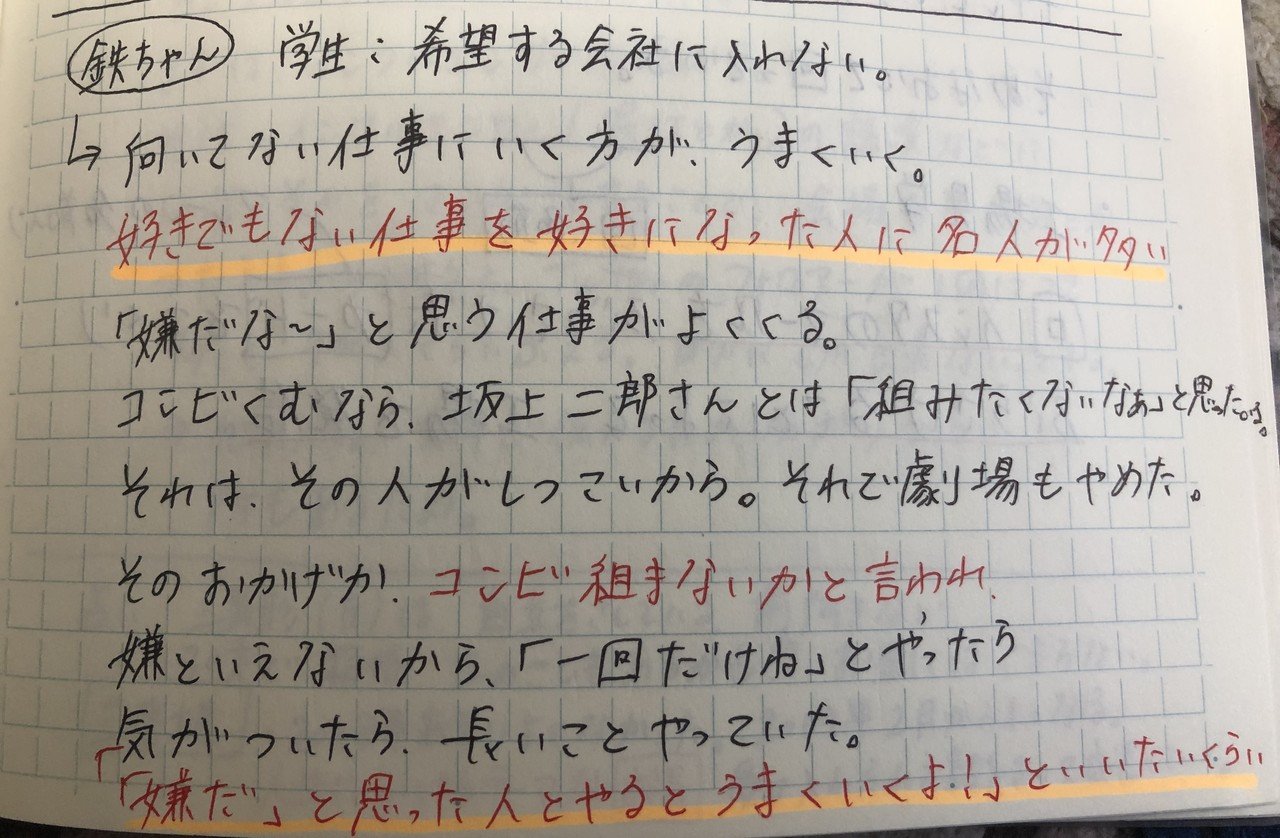 鉄ちゃん 学生:希望する会社に入れない。
↳向いてない仕事にいく方が、うまくいく。
好きでもない仕事を好きになった人に名人が多い
「嫌だな~」と思う仕事がよくくる。
コンビくむなら、坂上二郎さんとは「組みたくないなぁ」と思った。
それは、その人がしつこいから。それで劇場もやめた。
そのおかげか、コンビ組まないかと言われ、
嫌といえないから、「一回だけね」とやったら
気がついたら、長いことやっていた。
「「嫌だ」と思った人とやるとうまくいくよ!」といいたいくらい